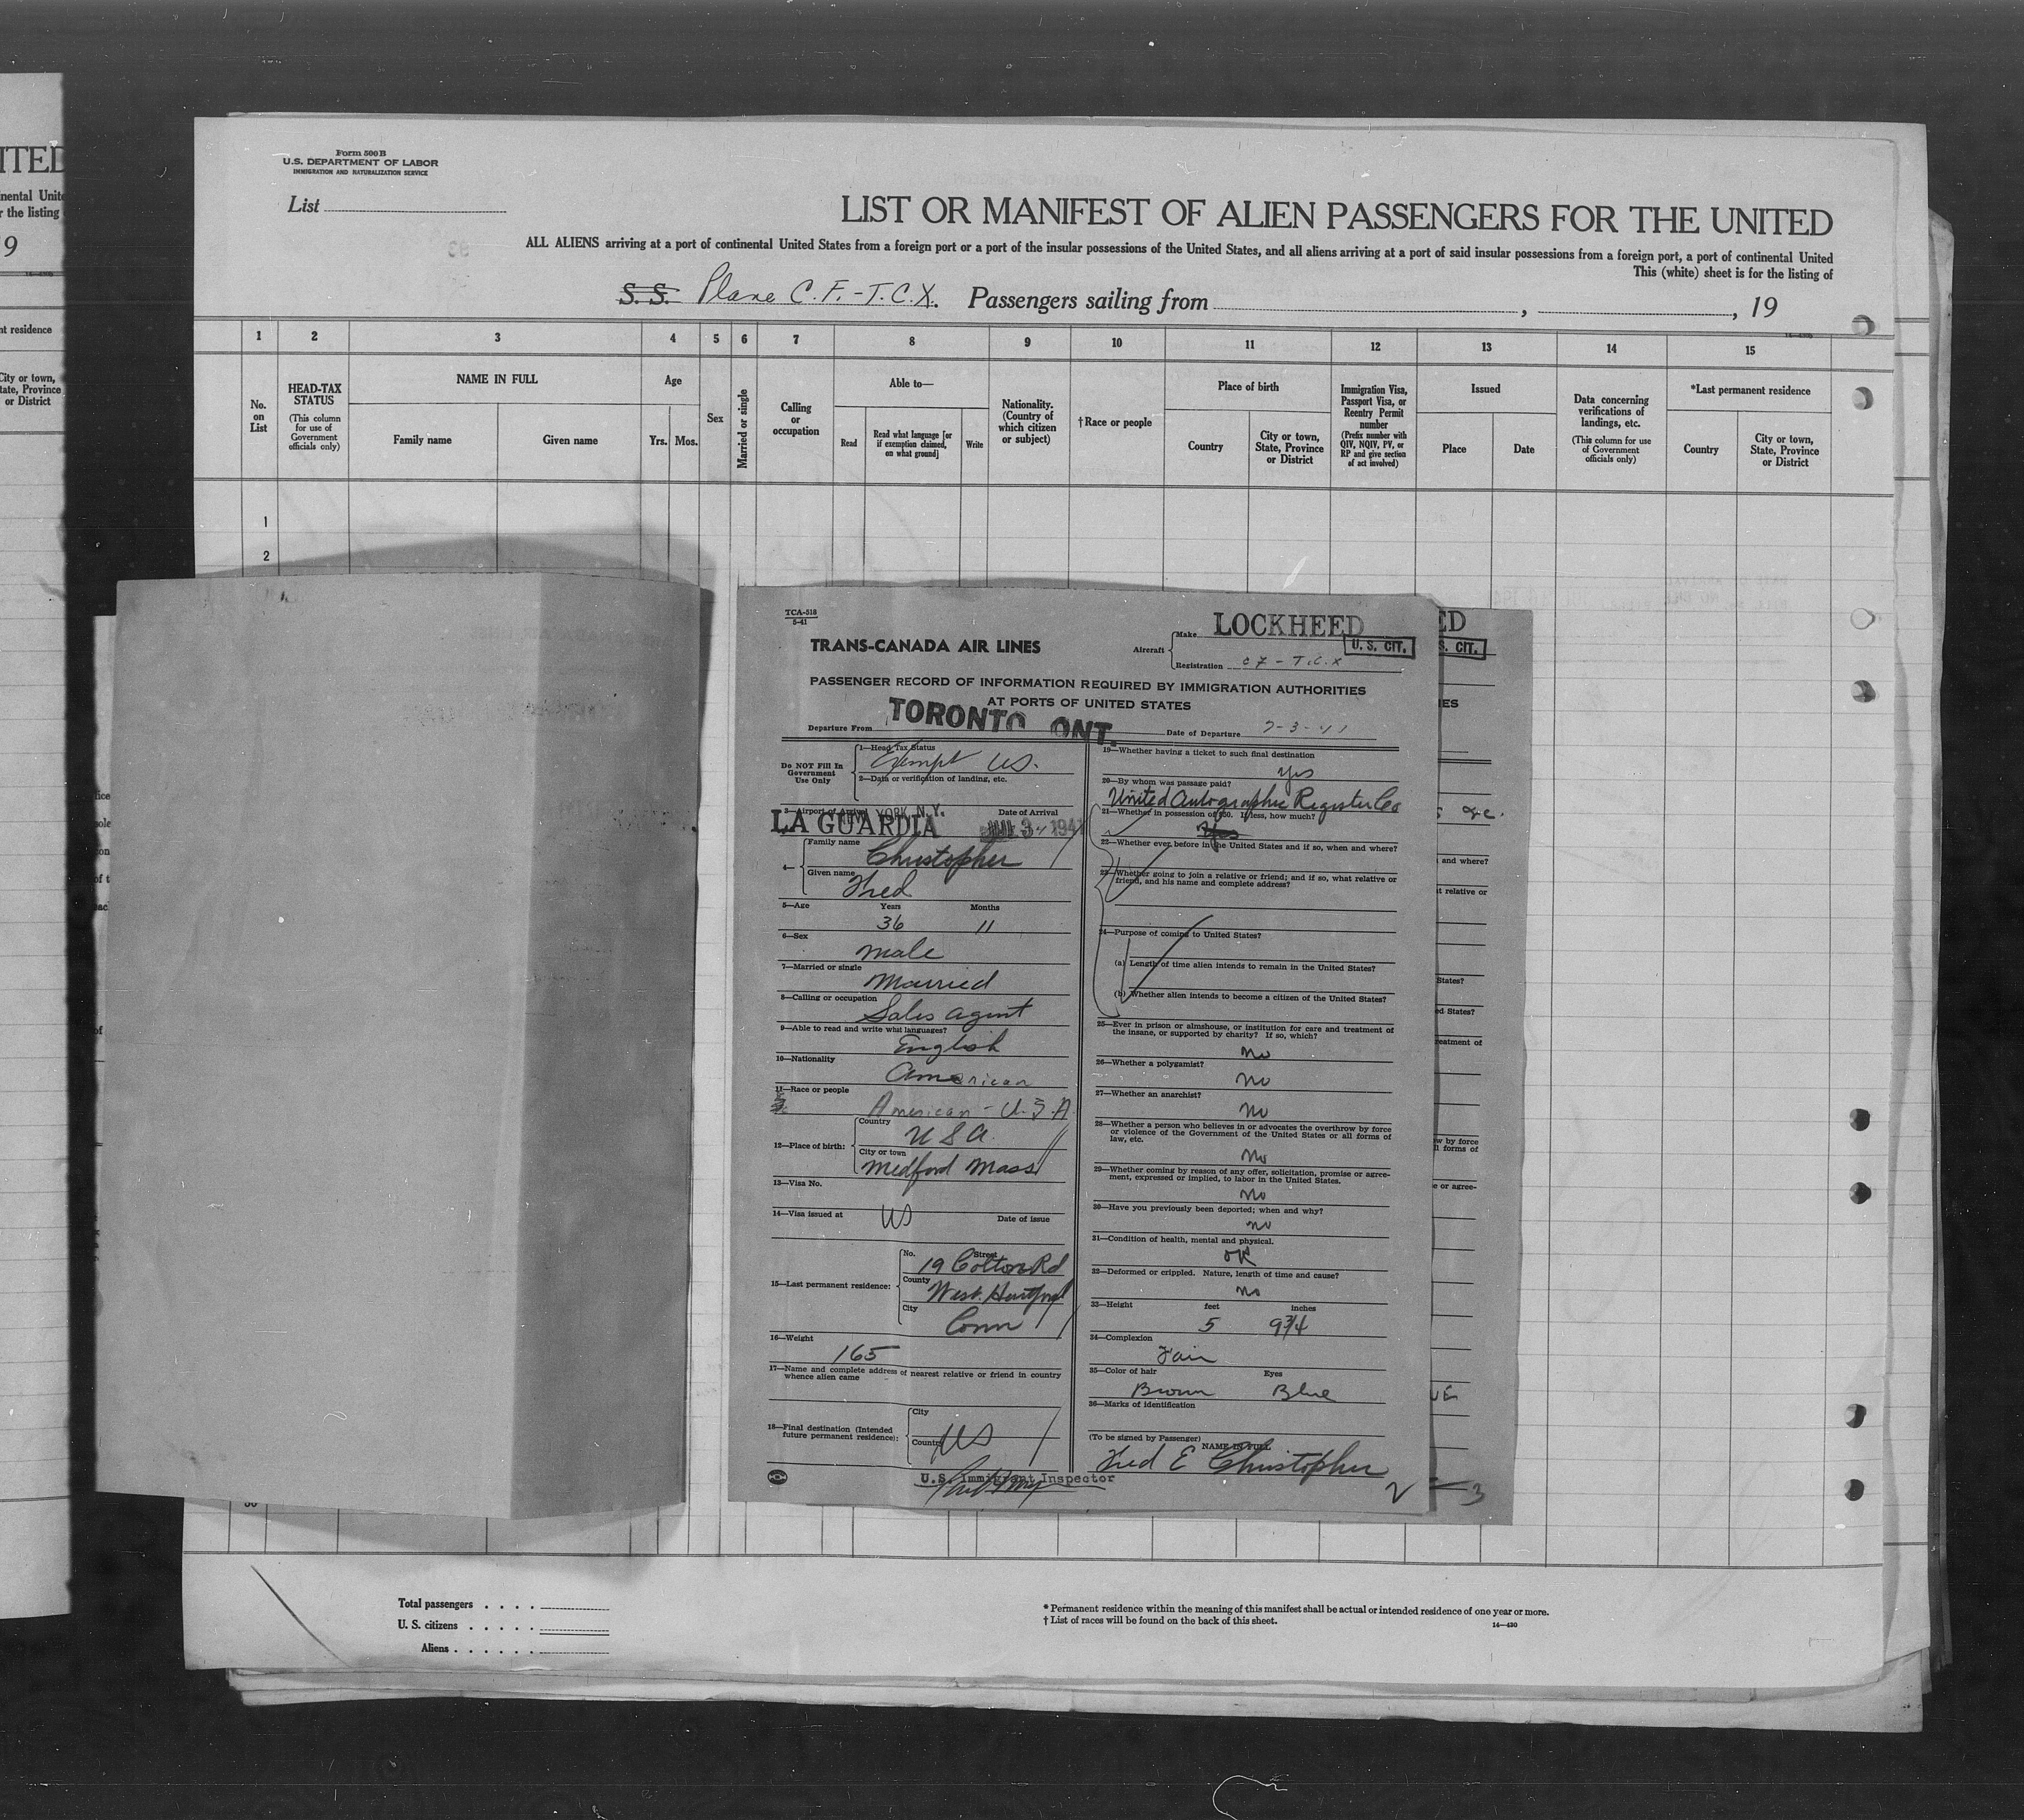 ITED
inental Unite
r the listing
9
nt residence
City or town,
tate, Province
or District
Form 500 B
U.S. DEPARTMENT OF LABOR
IMMIGRATION AND NATURALIZATION SERVICE
List
LIST OR MANIFEST OF ALIEN PASSENGERS FOR THE UNITED
ALL ALIENS arriving at a port of continental United States from a foreign port or a port of the insular possessions of the United States, and all aliens arriving at a port of said insular possessions from a foreign port, a port of continental United
This (white) sheet is for the listing of
S.S. Plane C.F.-T.C.X. Passengers sailing from , , 19
1 2 3 4 5 6 7 8 9 10 11 12 13 14 15
No. on List
HEAD-TAX STATUS
(This column for use of Government officials only)
NAME IN FULL
Family name Given name
Age
Yrs. Mos.
Sex
Married or single
Calling or occupation
Able to—
Read
Read what language [or if exemption claimed, on what ground]
Write
Nationality. (Country of which citizen or subject)
†Race or people
Place of birth
Country
City or town, State, Province or District
Immigration Visa, Passport Visa, or Reentry Permit number
(Prefix number with QIV, NQIV, PV, or RP and give section of act involved)
Issued
Place Date
Data concerning verifications of landings, etc.
(This column for use of Government officials only)
*Last permanent residence
Country
City or town, State, Province or District
1
2
TCA-518
5-41
TRANS-CANADA AIR LINES
Aircraft
Make LOCKHEED
U. S. CIT.
Registration CF - T.C.X
PASSENGER RECORD OF INFORMATION REQUIRED BY IMMIGRATION AUTHORITIES
AT PORTS OF UNITED STATES
Departure From TORONTO ONT. Date of Departure 7-3-41
Do NOT Fill In Government Use Only
1—Head Tax Status
Exempt US.
2—Data or verification of landing, etc.
3—Airport of Arrival Date of Arrival
NEW YORK, N.Y.
LA GUARDIA JUL 3 1941
4—
Family name
Christopher
Given name
Fred
5—Age Years Months
36 11
6—Sex
male
7—Married or single
Married
8—Calling or occupation
Sales agent
9—Able to read and write what languages?
English
10—Nationality
American
11—Race or people
American - U.S.A.
12—Place of birth:
Country
USA.
City or town
Medford Mass
13—Visa No.
14—Visa issued at Date of issue
US
15—Last permanent residence:
No. Street
19 Colton Rd
County
West Hartford
City
Conn
16—Weight
165
17—Name and complete address of nearest relative or friend in country
whence alien came
18—Final destination (Intended
future permanent residence):
City
Country
US
U.S. Immigrant Inspector
19—Whether having a ticket to such final destination
yes
20—By whom was passage paid?
United Autographic Register Co
21—Whether in possession of $50. If less, how much?
Yes
22—Whether ever before in the United States and if so, when and where?
23—Whether going to join a relative or friend; and if so, what relative or
friend, and his name and complete address?
24—Purpose of coming to United States?
(a) Length of time alien intends to remain in the United States?
(b) Whether alien intends to become a citizen of the United States?
25—Ever in prison or almshouse, or institution for care and treatment of
the insane, or supported by charity? If so, which?
no
26—Whether a polygamist?
no
27—Whether an anarchist?
no
28—Whether a person who believes in or advocates the overthrow by force
or violence of the Government of the United States or all forms of
law, etc.
No
29—Whether coming by reason of any offer, solicitation, promise or agree-
ment, expressed or implied, to labor in the United States.
no
30—Have you previously been deported; when and why?
no
31—Condition of health, mental and physical.
OK
32—Deformed or crippled. Nature, length of time and cause?
no
33—Height feet inches
5 9 3/4
34—Complexion
Fair
35—Color of hair Eyes
Brown Blue
36—Marks of identification
(To be signed by Passenger)
NAME IN FULL
Fred E Christopher
2
ED
S. CIT.
IES
and where?
t relative or
States?
ed States?
reatment of
w by force
ll forms of
e or agree-
UE
3
30
Total passengers
U. S. citizens
Aliens
* Permanent residence within the meaning of this manifest shall be actual or intended residence of one year or more.
† List of races will be found on the back of this sheet.
14—430